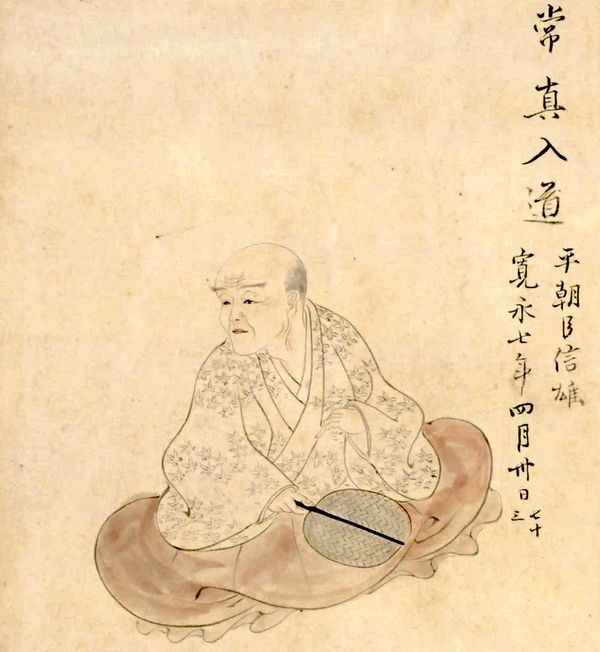 常真入道
平朝臣信雄
寛永七年四月卅日
七十三